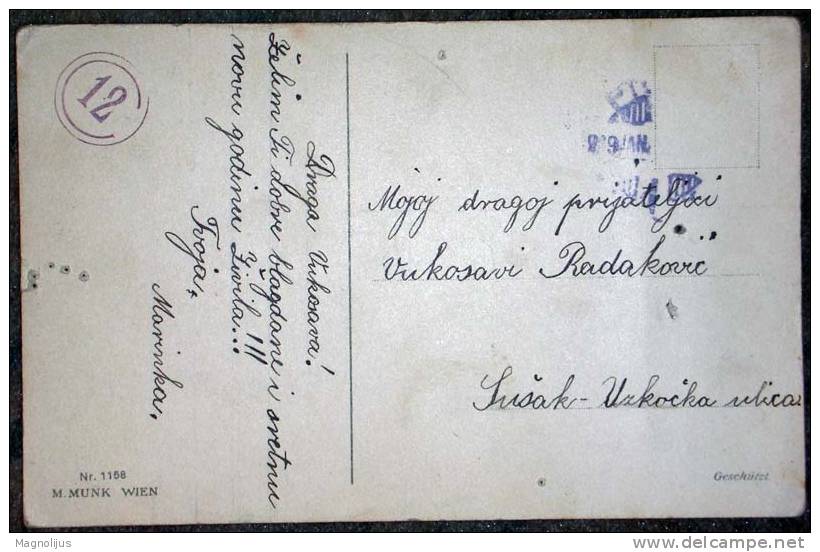 12
Draga Vukosava!
Želim Ti dobre blagdane i sretnu
novu godinu Živila...!!!
Tvoja,
Marinka.
Nr. 1158
M. MUNK WIEN
Mojoj dragoj prijateljici
Vukosavi Radaković
Sušak - Uzkočka ulica
Geschützt
Magnolijus
delcampe.net